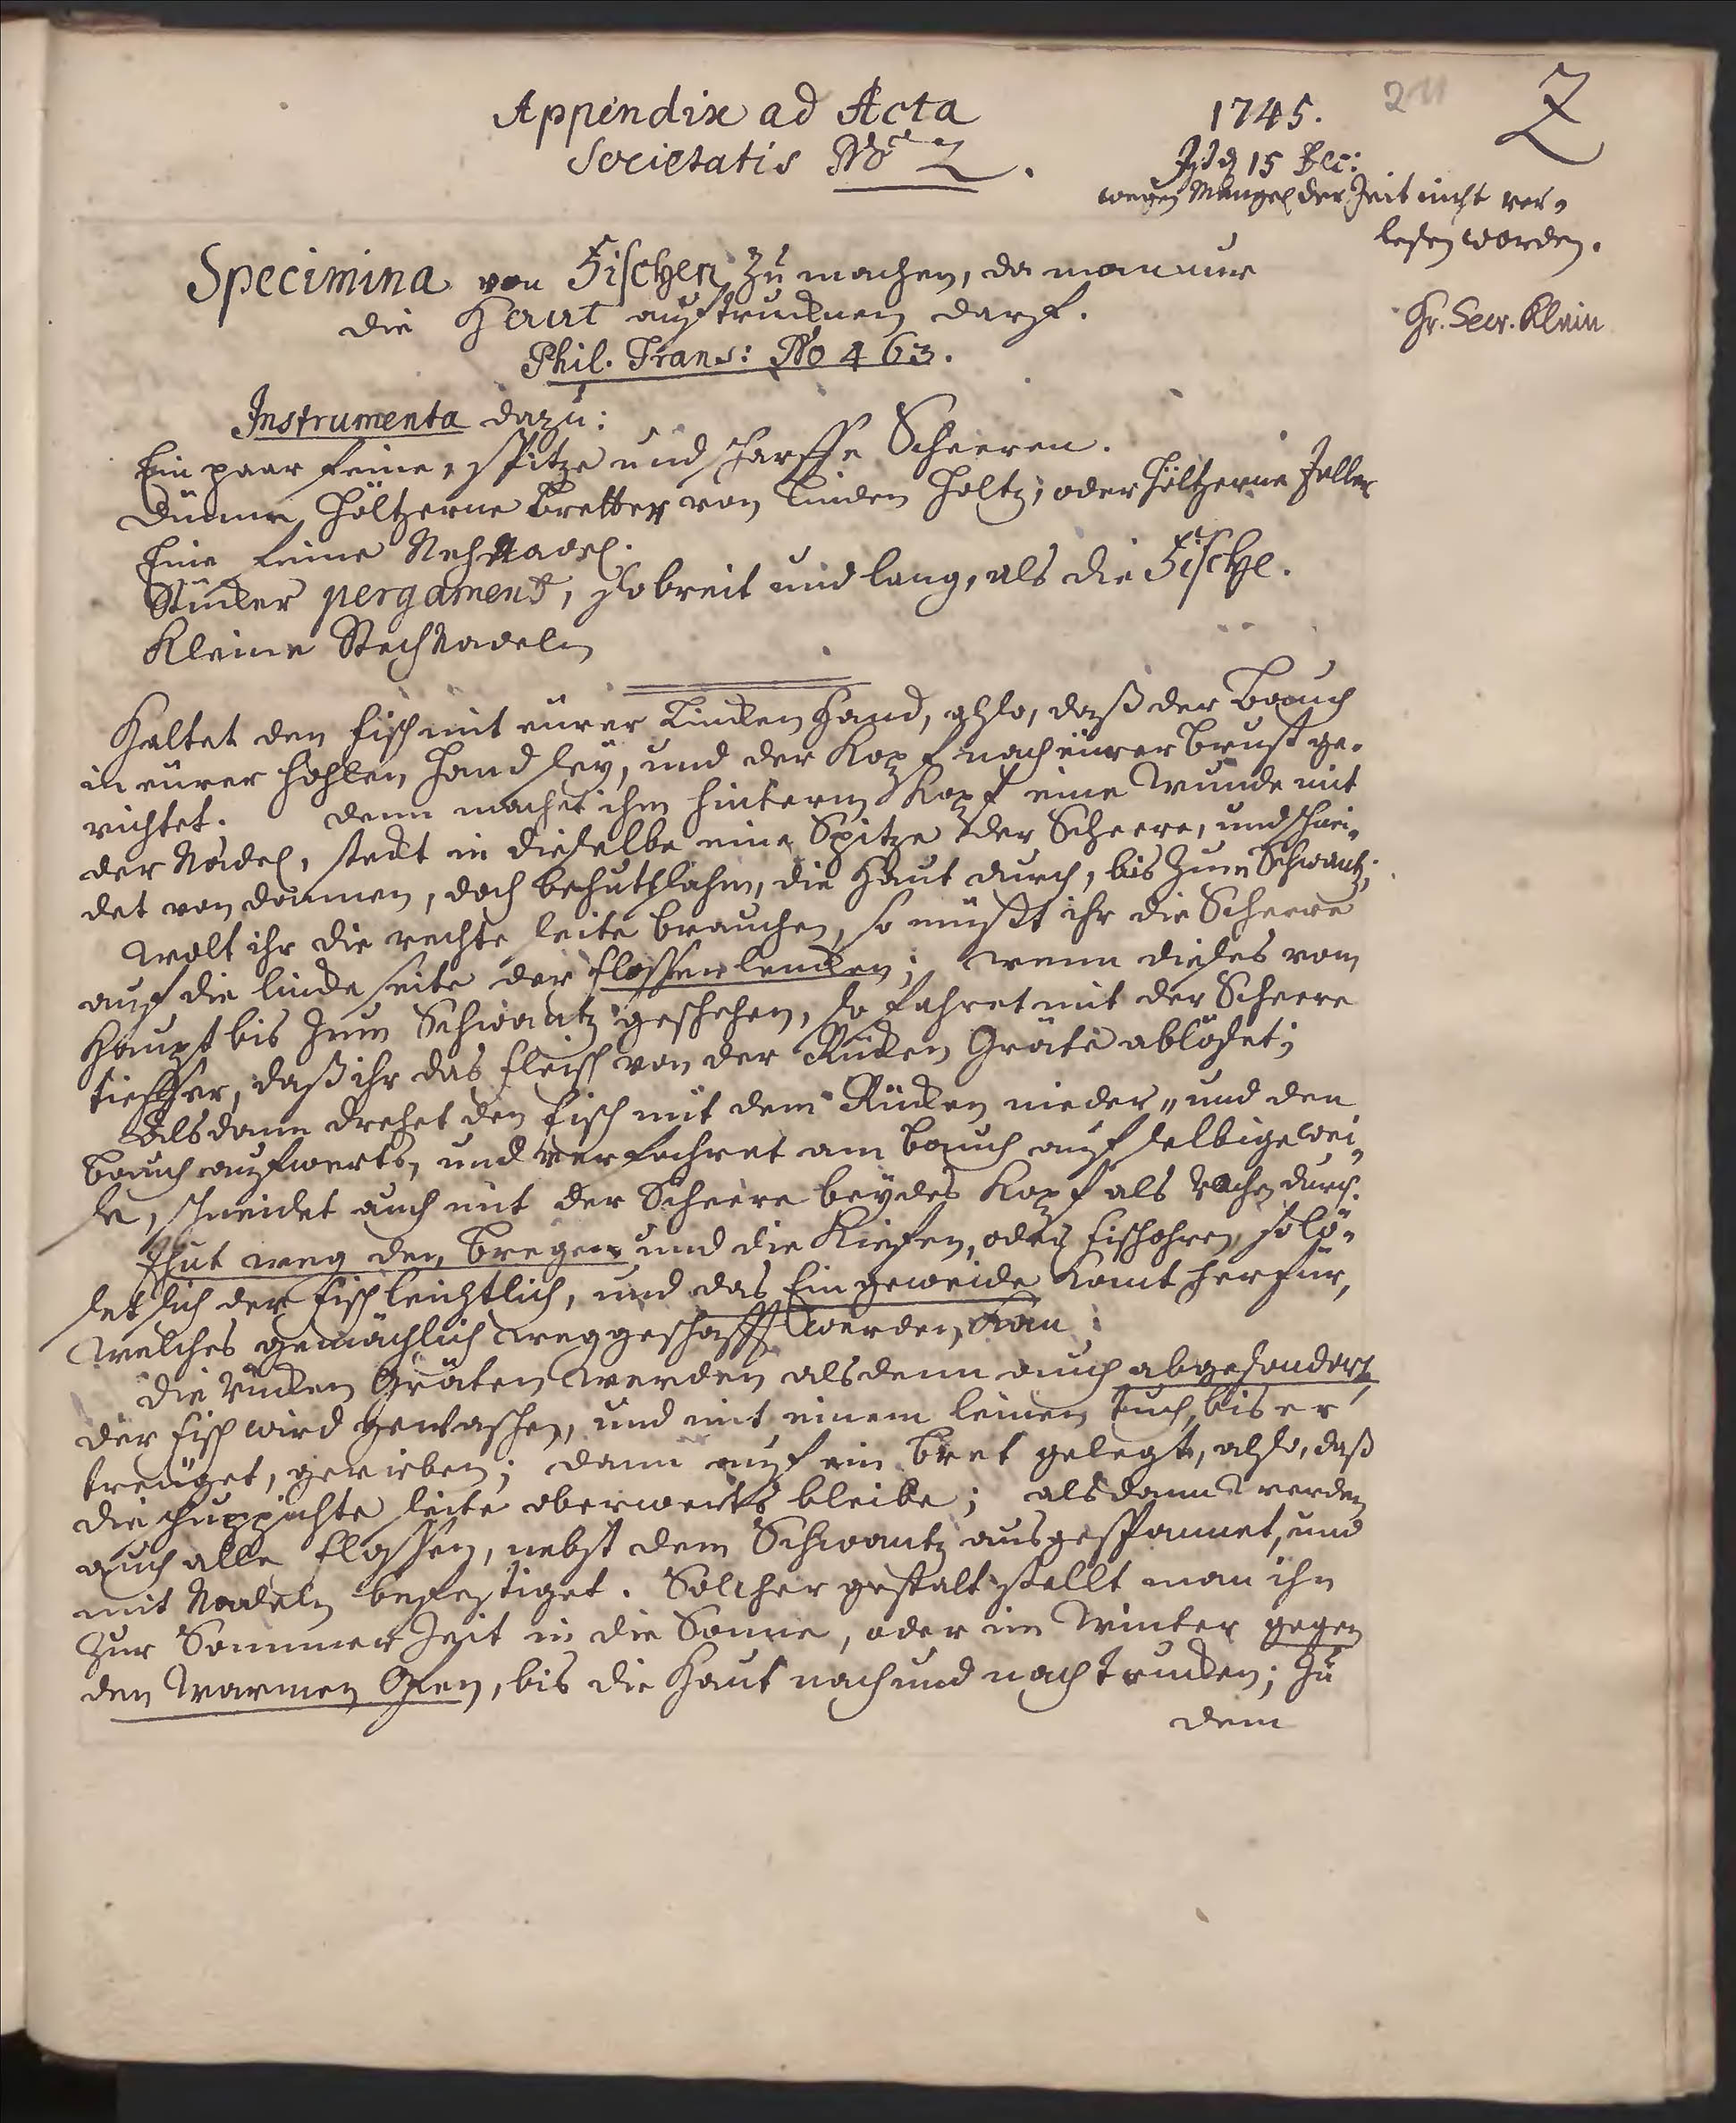 Appendix ad Acta
Societatis No Z.
1745.
211
Z
15 Dec:
wegen Mangel der Zeit nicht ver-
lesen worden.
Specimina von Fischen zu machen, da man nur
die Haut auftrucknen darf.
Hr. Secr. Klein
Phil. Trans: No 463.
Instrumenta dazu:
Ein paar feine, spitze und scharffe Scheeren.
Dünne, höltzerne Bretter von Linden Holtz, oder höltzerne Teller
Eine feine NehNadel.
Stücker pergament, so breit und lang, als die Fische.
Kleine StechNadeln
Haltet den fisch mit eurer Lincken Hand, also, daß der Bauch
in eurer hohlen Hand sey, und der Kopf nach eurer Brust ge-
richtet. Denn machet ihm hinterm Kopf eine Wunde mit
der Nadel, steckt in dieselbe eine Spitze der Scheere, und schnei-
det von dannen, doch behuthsahm, die Haut durch, bis zum Schwantz;
Wolt ihr die rechte seite brauchen, so müßt ihr die Scheere
auf die lincke seite der flossen lencken; wenn dieses vom
Haupt bis zum Schwantz geschehen, so fahret mit der Scheere
tieffer, daß ihr das fleisch von der Rücken Gräte ablöset;
Alsdann drehet den fisch mit dem Rücken nieder- und den
Bauch aufwerts, und verfahret am Bauch auf selbige wei-
se, schneidet auch mit der Scheere beydes Kopf als Rachen durch.
Thut weg den Bregen und die Kiefen, oder fischohren, so lö-
set sich der fisch leichtlich, und das Eingeweide komt herfür,
welches gemächlich weggeschafft werden kan;
Die Rücken Gräten werden alsdenn auch abgesondert,
der fisch wird gewaschen, und mit einem leinen tuch, bis er
treuget, gerieben; dann auf ein Bret gelegt, also, daß
die schuppichte seite oberwerts bleibe; alsdann werden
auch alle flossen, nebst dem Schwantz ausgespannet, und
mit Nadeln befestiget. Solcher gestalt stellt man ihn
zur Sommer Zeit in die Sonne, oder im Winter gegen
den warmen Ofen, bis die Haut nach und nach trucken; zu
dem